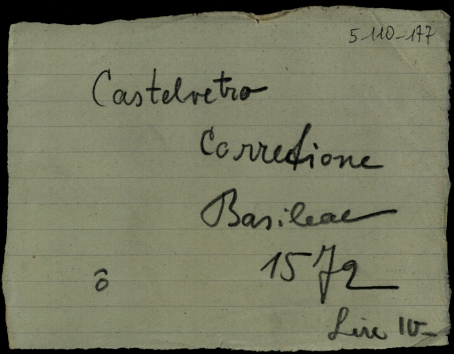 5-110-177
Castelvetro
Correfione
Basileae
1572
ô
Lire 10-